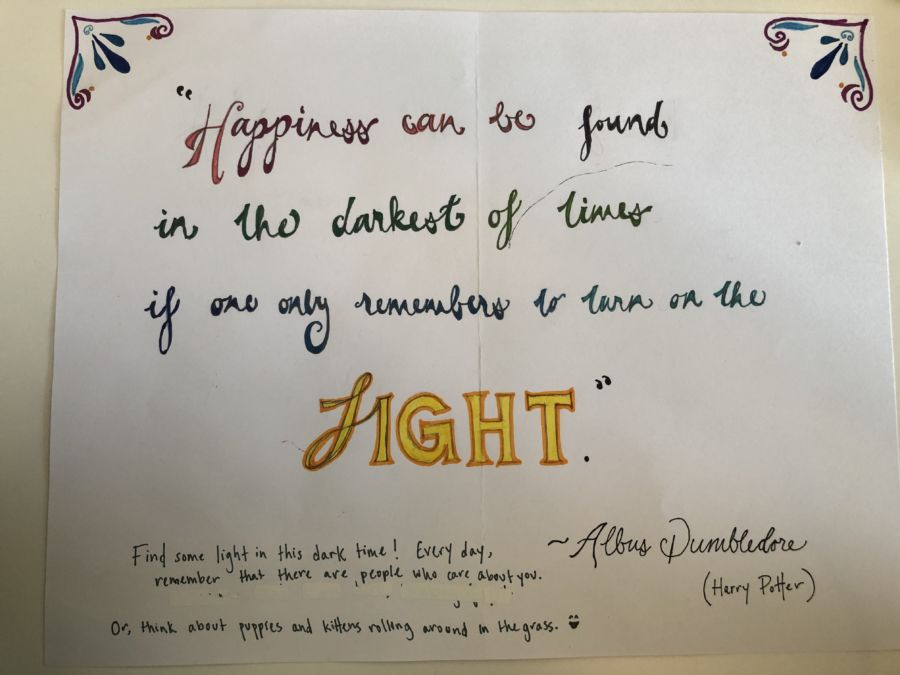 "Happiness can be found
in the darkest of times
if one only remembers to turn on the
LIGHT".
~Albus Dumbledore
(Harry Potter)
Find some light in this dark time! Every day,
remember that there are people who care about you.
Or, think about puppies and kittens rolling around in the grass.